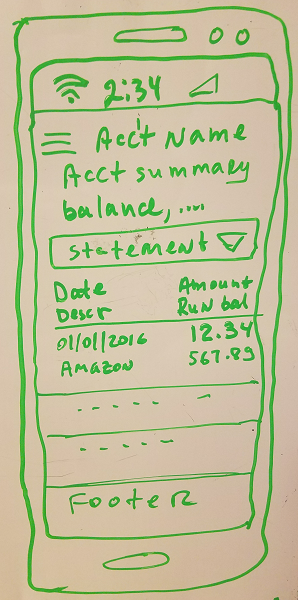 2:34
Acct Name
Acct summary
balance, ....
Statement
Date Amount
Descr Run bal
01/01/2016 12.34
Amazon 567.89
- - - - - -
- - - - -
Footer